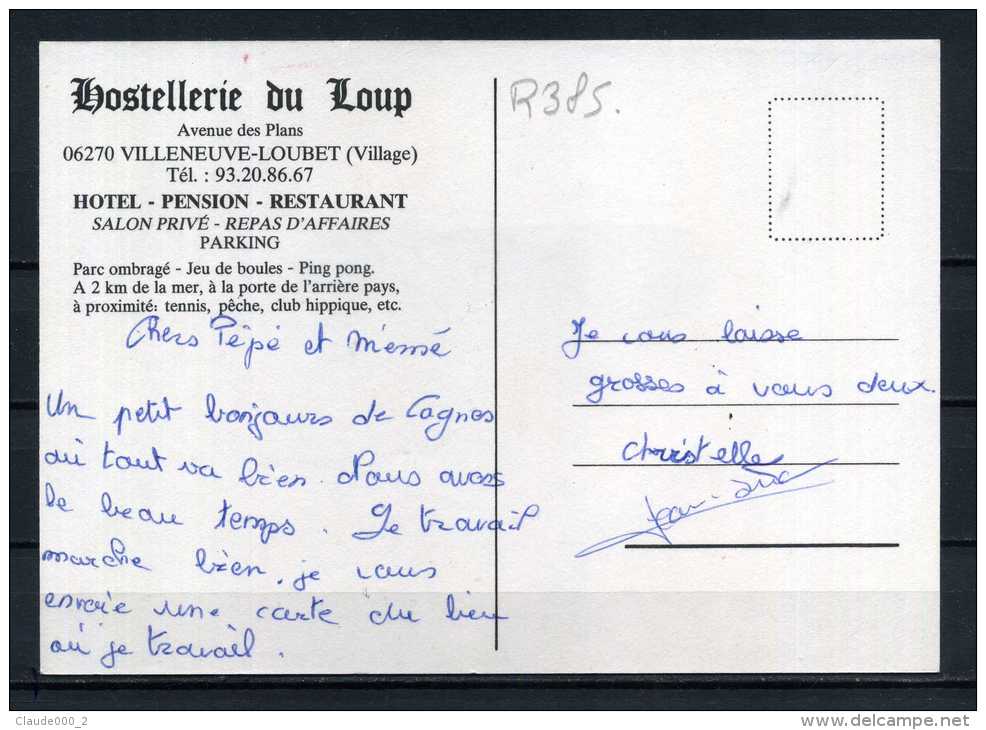 Hostellerie du Loup
Avenue des Plans
06270 VILLENEUVE-LOUBET (Village)
Tél. : 93.20.86.67
HOTEL - PENSION - RESTAURANT
SALON PRIVÉ - REPAS D'AFFAIRES
PARKING
Parc ombragé - Jeu de boules - Ping pong.
A 2 km de la mer, à la porte de l'arrière pays,
à proximité: tennis, pêche, club hippique, etc.
Chers Pépé et Mémé
Un petit bonjours de Cagnes
où tout va bien. Nous avons
le beau temps. Le travail
marche bien, je vous
envoie une carte du lieu
où je travail.
R385.
Je vous laisse
grosses à vous deux.
Christelle
Jean-Luc
Claude000_2
www.delcampe.net